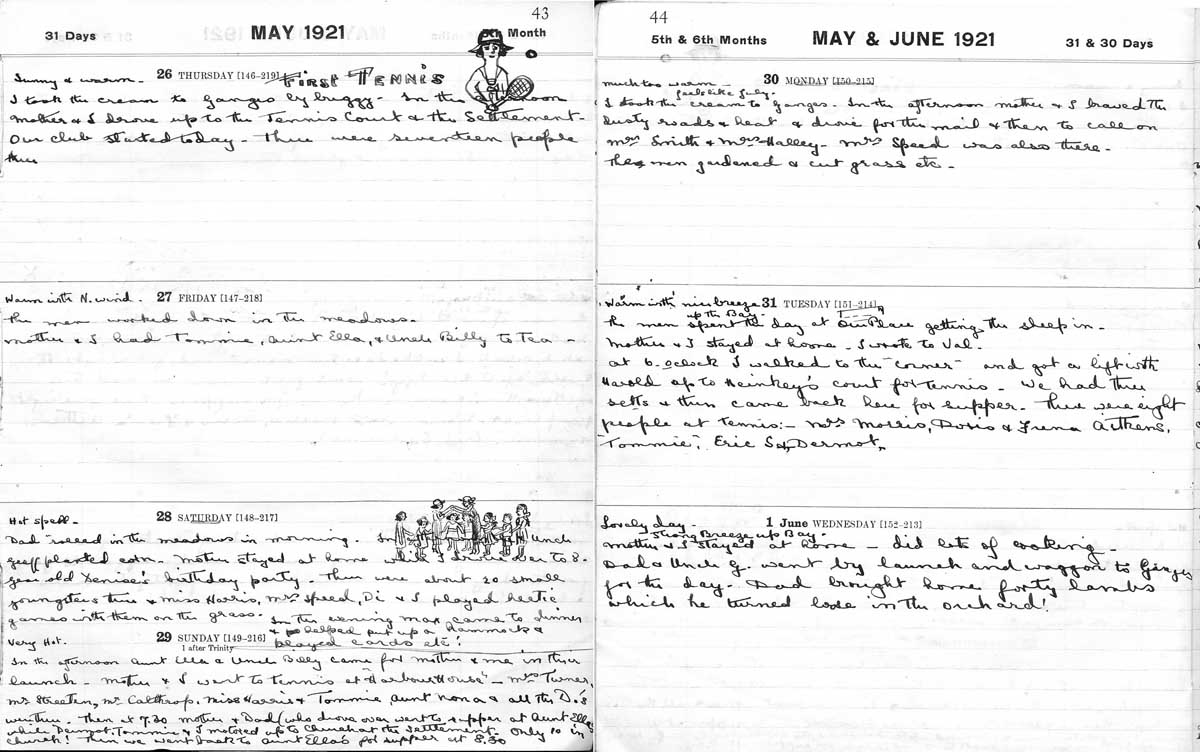 43
31 Days MAY 1921 Month
26 THURSDAY [146–219] FIRST TENNIS
Sunny & warm -
I took the cream to Ganges by buggy. In the afternoon
mother & I drove up to the Tennis Court & the Settlement.
Our club started today - There were seventeen people
there
27 FRIDAY [147–218]
Warm with N. wind.
The men worked down in the meadows.
Mother & I had Tommie, Aunt Ella, & Uncle Billy to Tea -
28 SATURDAY [148–217]
Hot spell -
Dad in the meadows in morning. In Uncle
Geoff planted corn. Mother stayed at home while I drove over to 8.
year old Denise's birthday party. There were about 20 small
youngsters there & Miss Harris, Mrs Speed, Di & I played hectic
games with them on the grass. In the evening Max came to dinner
& helped put up a hammock &
played cards etc!
29 SUNDAY [149–216]
1 after Trinity
Very Hot.
In the afternoon Aunt Ella & Uncle Billy came for mother & me in their
launch - Mother & I went to tennis at "Harbour House" - Mrs Turner,
Mrs Streeten, Mr Calthrop, Miss Harris & Tommie, Aunt Nona & all the D.'s
were there. Then at 7.30 mother & Dad (who drove over went to supper at Aunt Ella's
while Dermot, Tommie & I motored up to Church at the Settlement. Only 10 in
church! Then we went back to Aunt Ella's for supper at 8.30
44
5th & 6th Months MAY & JUNE 1921 31 & 30 Days
30 MONDAY [150–215]
much too warm -
feels like July.
I took the cream to Ganges. In the afternoon mother & I braved the
dusty roads & heat & drove for the mail & then to call on
Mrs Smith & Mrs Halley. Mrs Speed was also there.
The men gardened & cut grass etc -
31 TUESDAY [151–214]
Warm with nice breeze
up the Bay.
The men spent the day at Our Place getting the sheep in -
Mother & I stayed at home - I wrote to Val.
At 6-oclock I walked to the "corner" and got a lift with
Harold up to Heinkey's court for tennis - We had three
setts & then came back here for supper. There were eight
people at tennis:- Mrs Morris, Doris & Irena Aitkens,
"Tommie", Eric S, & Dermot,
1 June WEDNESDAY [152–213]
Lovely day -
- Strong Breeze up Bay.
Mother & I stayed at home - did lots of cooking -
Dad & Uncle G. went by launch and waggon to Ganges
for the day. Dad brought home forty lambs
which he turned loose in the orchard!